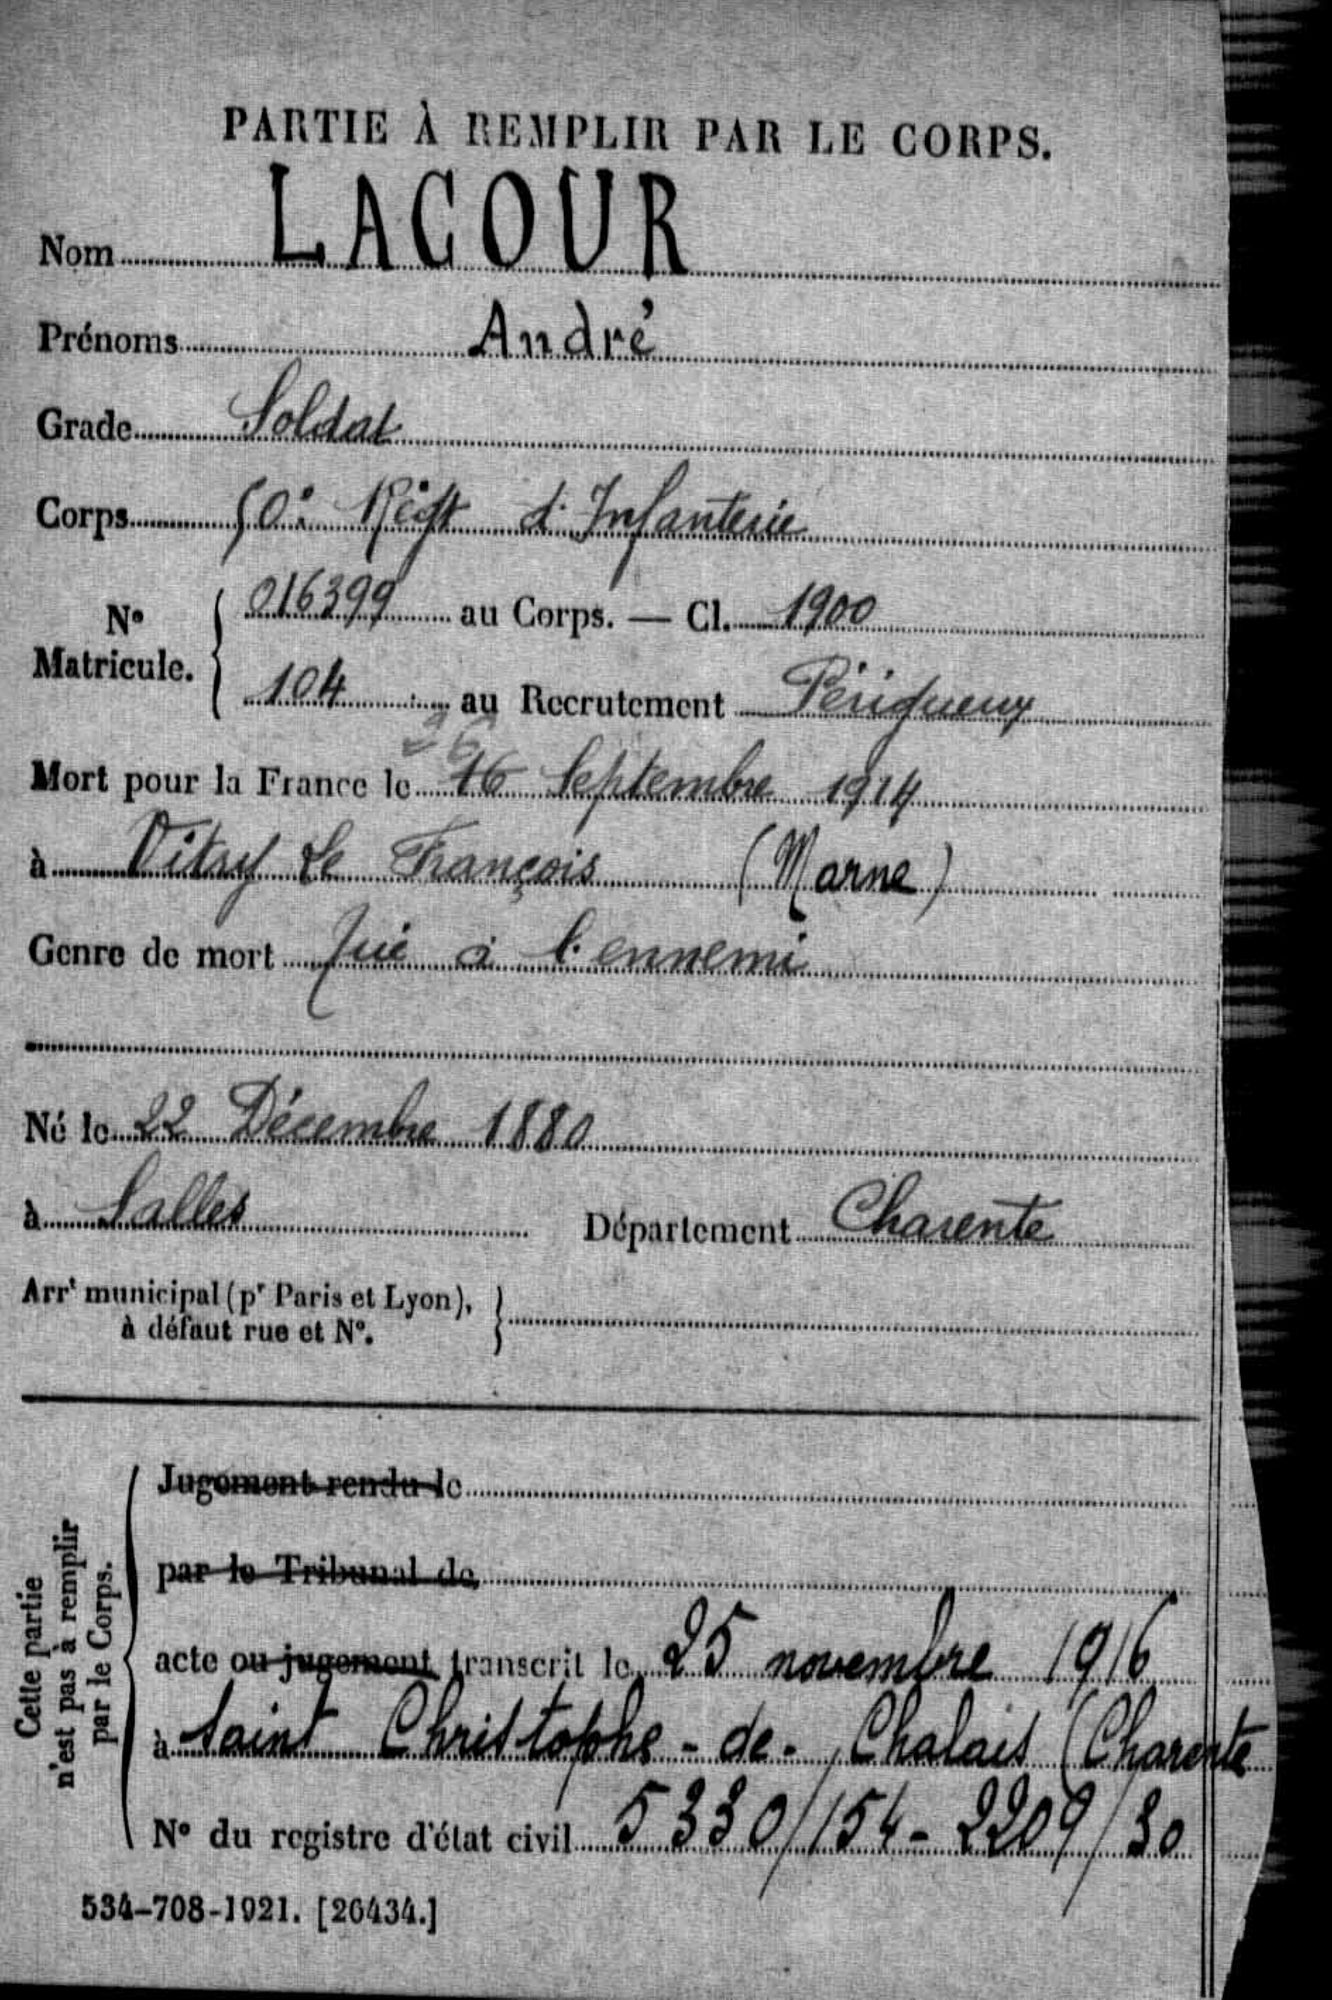 PARTIE À REMPLIR PAR LE CORPS.
Nom LACOUR
Prénoms André
Grade Soldat
Corps 50e Régt d'Infanterie
No Matricule. 016399 au Corps. — Cl. 1900
104 au Recrutement Périgueux
26
Mort pour la France le 16 Septembre 1914
à Vitry le François (Marne)
Genre de mort Tué à l'ennemi
Né le 22 Décembre 1880
à Salles Département Charente
Arrt municipal (pr Paris et Lyon), à défaut rue et No.
Cette partie n'est pas à remplir par le Corps.
Jugement rendu le
par le Tribunal de
acte ou jugement transcrit le 25 novembre 1916
à Saint Christophe-de-Chalais (Charente
No du registre d'état civil 5330/154-2209/30
534-708-1921. [26434.]